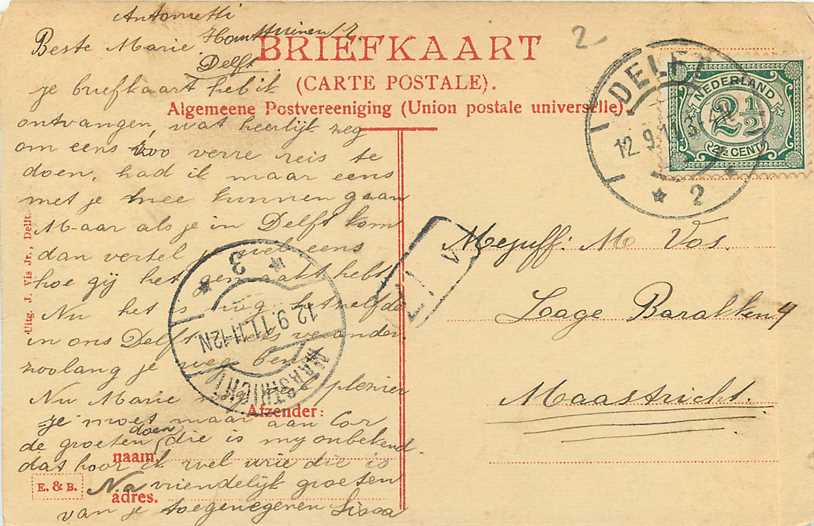 Antoinetti
Beste Marie
Delft
je briefkaart heb ik
ontvangen, wat heerlijk zeg
om eens zoo verre reis te
doen, had ik maar eens
met je mee kunnen gaan
Maar als je in Delft kom
dan vertel je eens
hoe gij het gemaakt hebt.
Nu het is nog hetzelfde
in ons Delft verander
zoolang je weg ben
Nu Marie plezier
je moet maar aan Cor
de groeten doen, die is my onbekend
dat hoor ik wel wie die is
Na vriendelijk groeten
van je toegenegenen
BRIEFKAART
(CARTE POSTALE).
Algemeene Postvereeniging (Union postale universelle).
Afzender:
naam,
adres.
Uitg. J. Vis Jr., Delft.
E. & B.
2
DELFT
12.9.11
* 2
NEDERLAND
2½
(2½ CENT)
MAASTRICHT
12.9.11.11-12N
* 3 *
V
Mejuff: M Vos.
Lage Barakken 4
Maastricht.